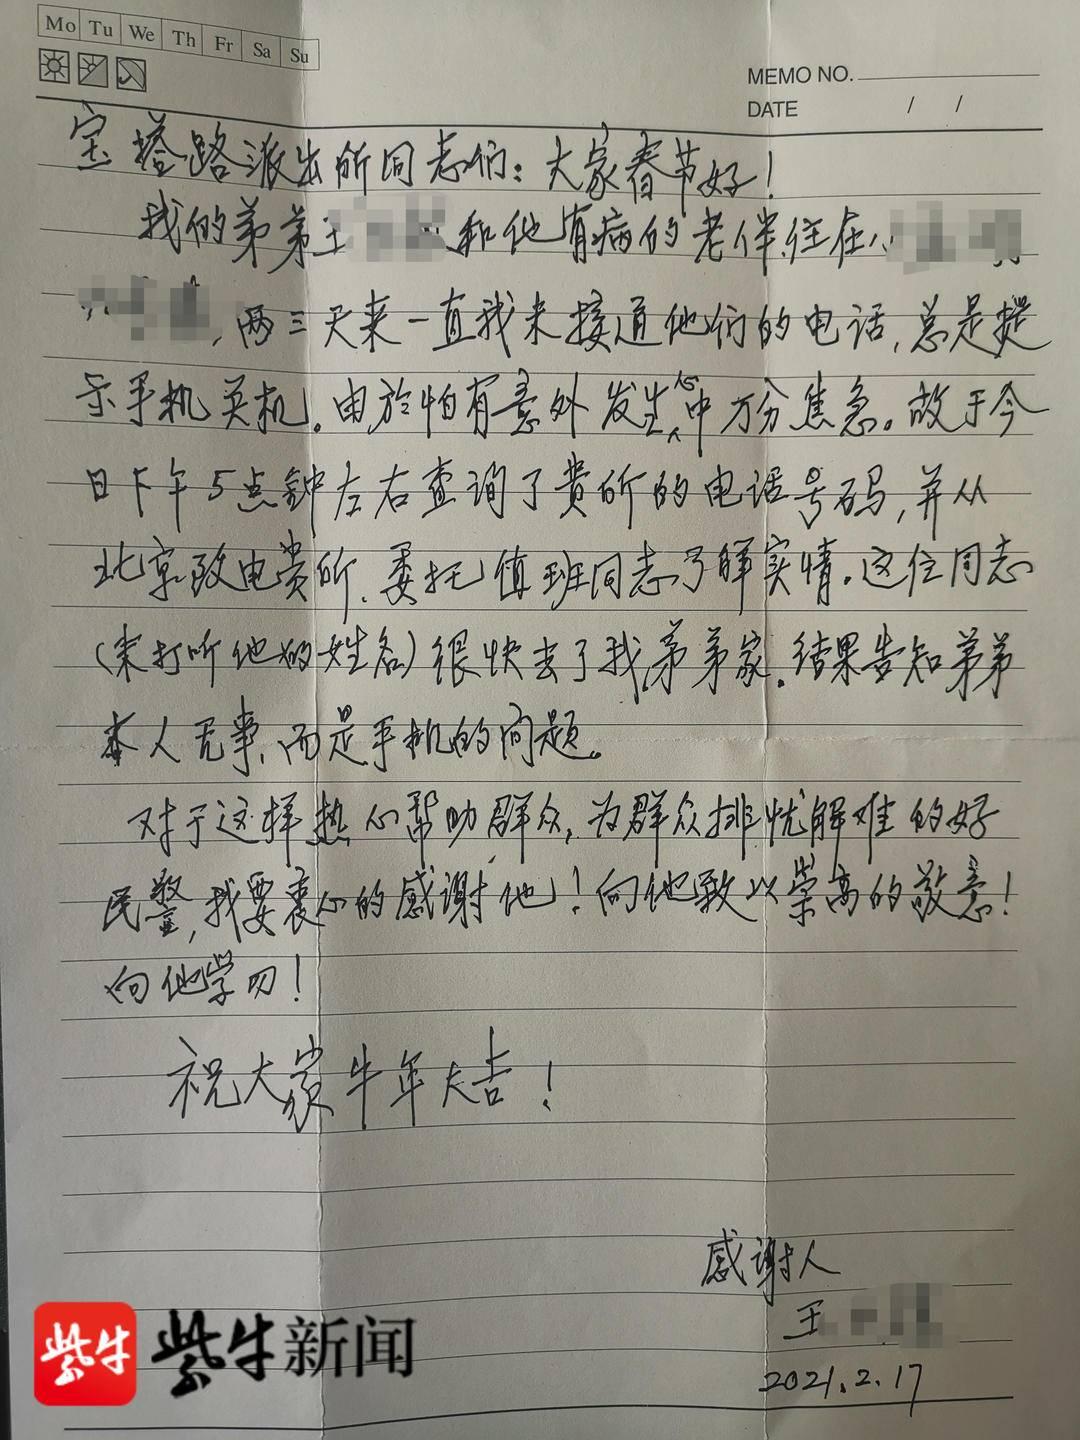 Mo Tu We Th Fr Sa Su
MEMO NO.
DATE / /
宝塔路派出所同志们：大家春节好！
我的弟弟王 和他有病的老伴住在
，两三天来一直我未接通他们的电话，总是提
示手机关机。由於怕有意外发生，心中万分焦急。故于今
日下午5点钟左右查询了贵所的电话号码，并从
北京致电贵所，委托值班同志了解实情。这位同志
（未打听他的姓名）很快去了我弟弟家。结果告知弟弟
本人无事，而是手机的问题。
对于这样热心帮助群众，为群众排忧解难的好
民警，我要衷心的感谢他！向他致以崇高的敬意！
向他学习！
祝大家牛年大吉！
感谢人
王
2021.2.17
紫牛 紫牛新闻